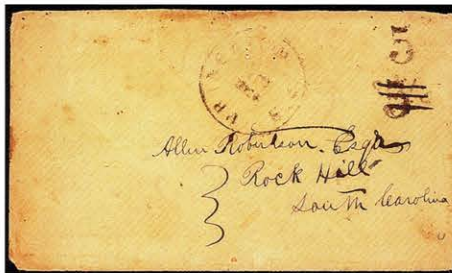 5
Allen Robertson. Esqr
Rock Hill
South Carolina